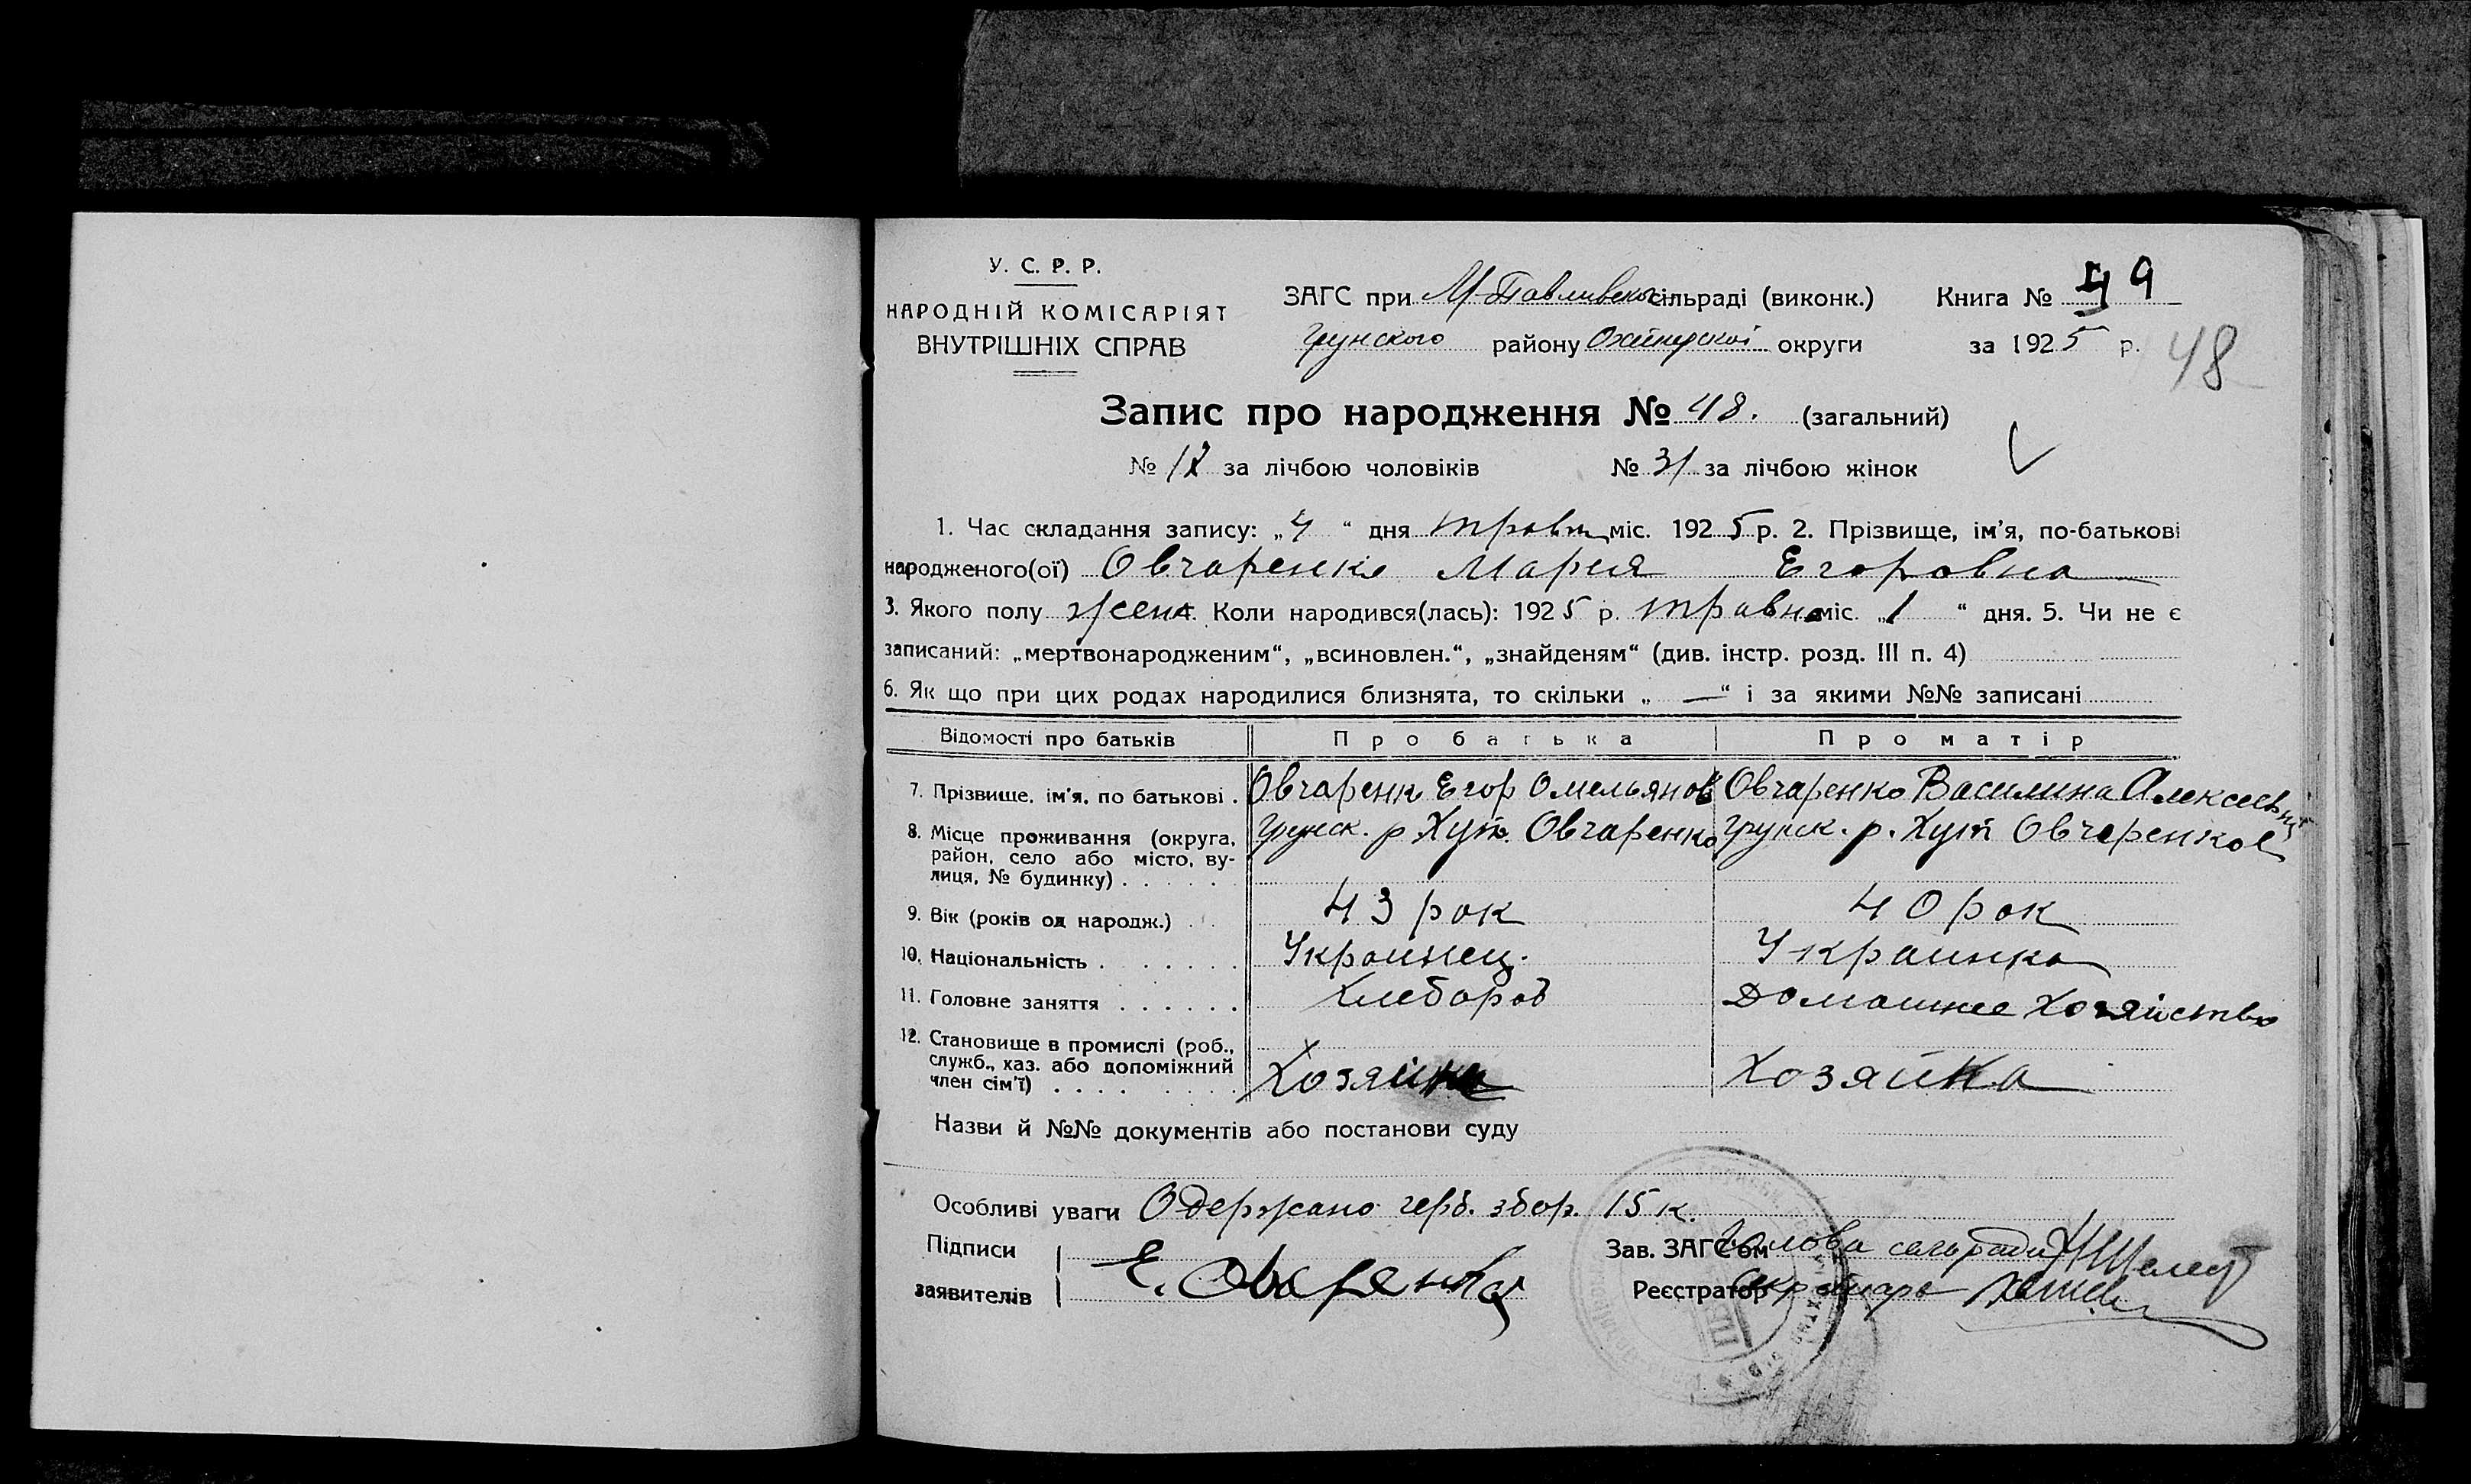 У. С. Р. Р.
НАРОДНІЙ КОМІСАРІЯТ
ВНУТРІШНІХ СПРАВ
ЗАГС при М-Павливской сільраді (виконк.) Книга №
грунского району Охтирской округи за 1925 р. 48
Запис про народження № 48. (загальний)
№ за лічбою чоловіків № 31 за лічбою жінок
1. Час складання запису: „4“ дня травн міс. 1925 р. 2. Прізвище, ім'я, по-батькові
народженого(ої) Овчаренко Мария Егоровна
3. Якого полу жен 4. Коли народився(лась): 1925 р. травня міс. „1“ дня. 5. Чи не є
записаний: „мертвонародженим“, „всиновлен.“, „знайденям“ (див. інстр. розд. III п. 4)
6. Як що при цих родах народилися близнята, то скільки „—“ і за якими №№ записані
Відомості про батьків Про батька Про матір
7. Прізвище, ім'я, по батькові . Овчаренк Егор Омельянов Овчаренко Василина Алексеевна
8. Місце проживання (округа, район, село або місто, вулиця, № будинку) . . . . . Грунск. р Хут. Овчаренко Грунск. р. Хут Овчаренков
9. Вік (років од народж.) . . 43 рок 40 рок
10. Національність . . . . . . Украинец. Украинка
11. Головне заняття . . . . . . Хлебороб Домашнее Хозяйство
12. Становище в промислі (роб., служб., хаз. або допоміжний член сім'ї) . . . . . . . . Хозяин Хозяйка
Назви й №№ документів або постанови суду
Особливі уваги Одержано герб. збор. 15 к.
Підписи заявителів Е. Овчаренко
Зав. ЗАГС'ом Голова сельради Шелест
Реєстратор Секретарь